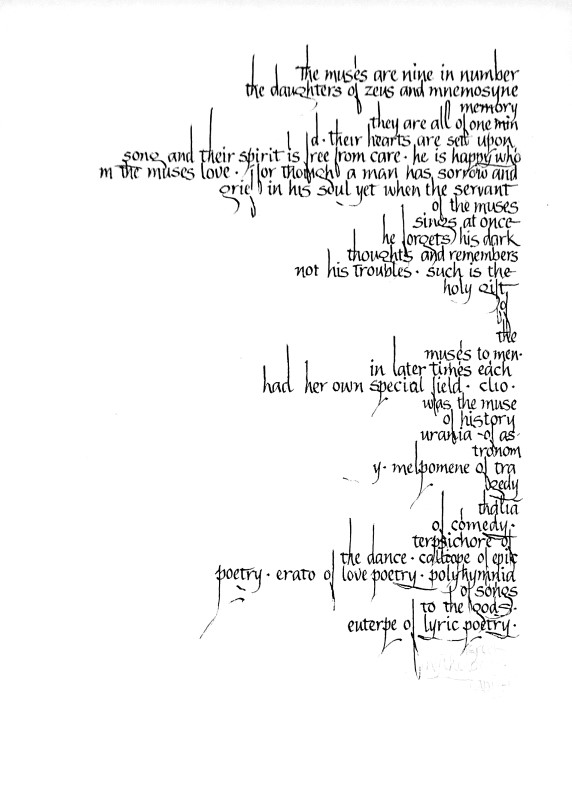 the muses are nine in number
the daughters of zeus and mnemosyne
memory
they are all of one min
d · their hearts are set upon
song and their spirit is free from care · he is happy who
m the muses love · for though a man has sorrow and
grief in his soul yet when the servant
of the muses
sings at once
he forgets his dark
thoughts and remembers
not his troubles · such is the
holy gift
of
the
muses to men·
in later times each
had her own special field · clio ·
was the muse
of history
urania - of as-
tronom
y · melpomene of tra
gedy
thalia
of comedy ·
terpsichore of
the dance · calliope of epic
poetry · erato of love poetry · polyhymnia
of songs
to the gods ·
euterpe of lyric poetry ·